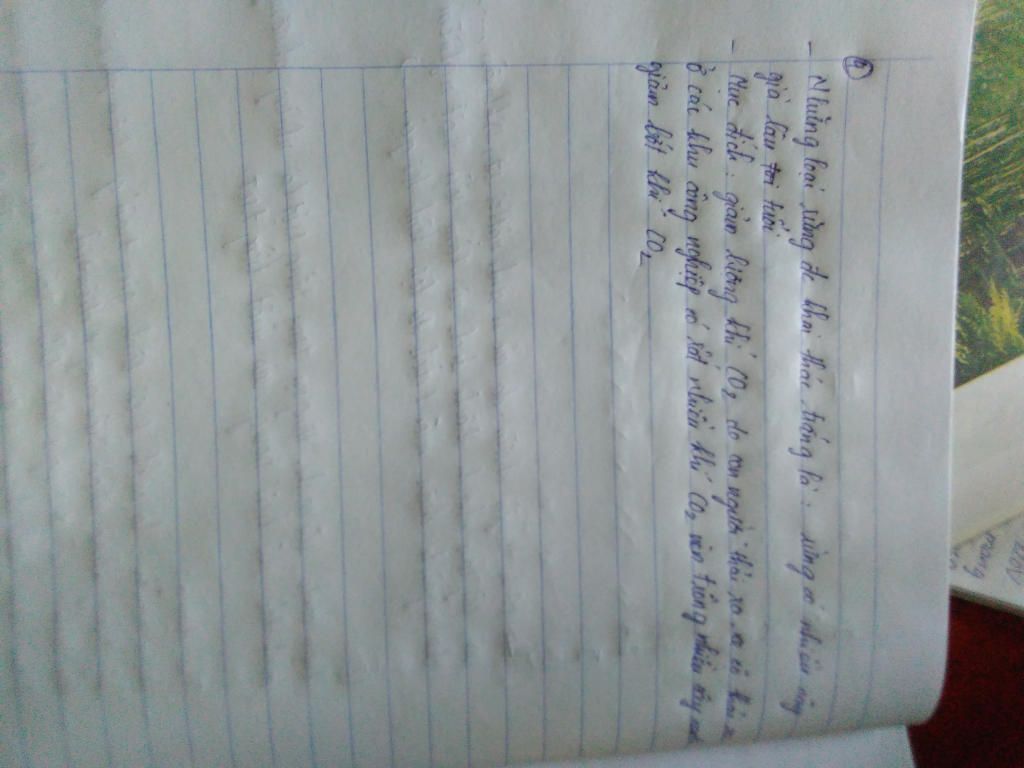 - Những loại rừng để khai thác trắng là : rừng có nhiều cây
già lâu tới tuổi
- Mục đích : giảm lượng khí CO2 do con người thải ra và có
ở các khu công nghiệp có rất nhiều khí CO2 nên trồng nhiều cây
giảm bớt khí CO2